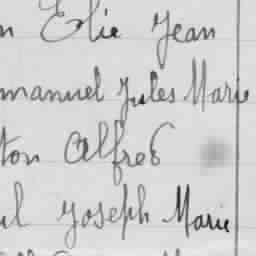 n Elie Jean
manuel Jules Marie
ton Alfred
ul Joseph Marie